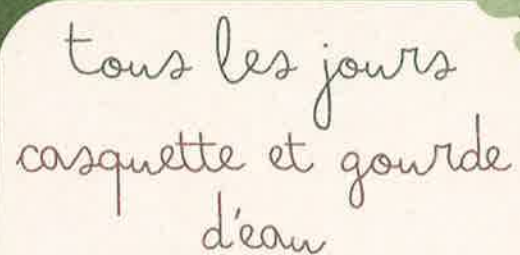 tous les jours
casquette et gourde
d'eau